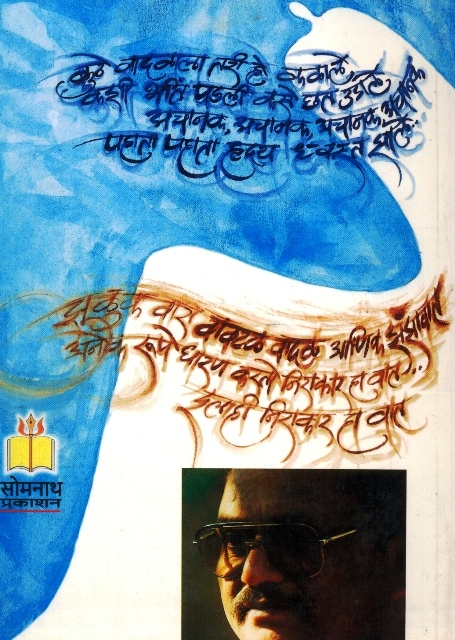 कुठे वादळाला तरी हे कळाले
कशी भिंत पडली कसे छत उडाले
अचानक, अचानक, अचानक, अचानक
पाहता पाहता हृदय ध्वस्त झाले..
झुळुक वारा वावटळ वादळ आणिक झंझावात
अनेक रूपे धारण करतो निराकार हा वात..
इलाही निराकार हा वात
सोमनाथ
प्रकाशन